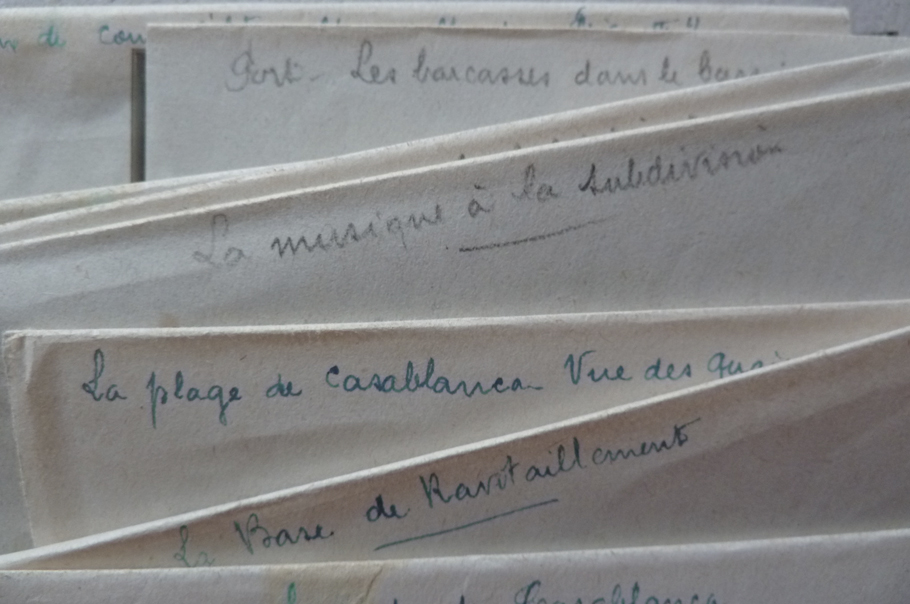 de
Port - Les barcasses dans le
La musique à la subdivision
La plage de Casablanca Vue des
La Base de Ravitaillement
Casablanca